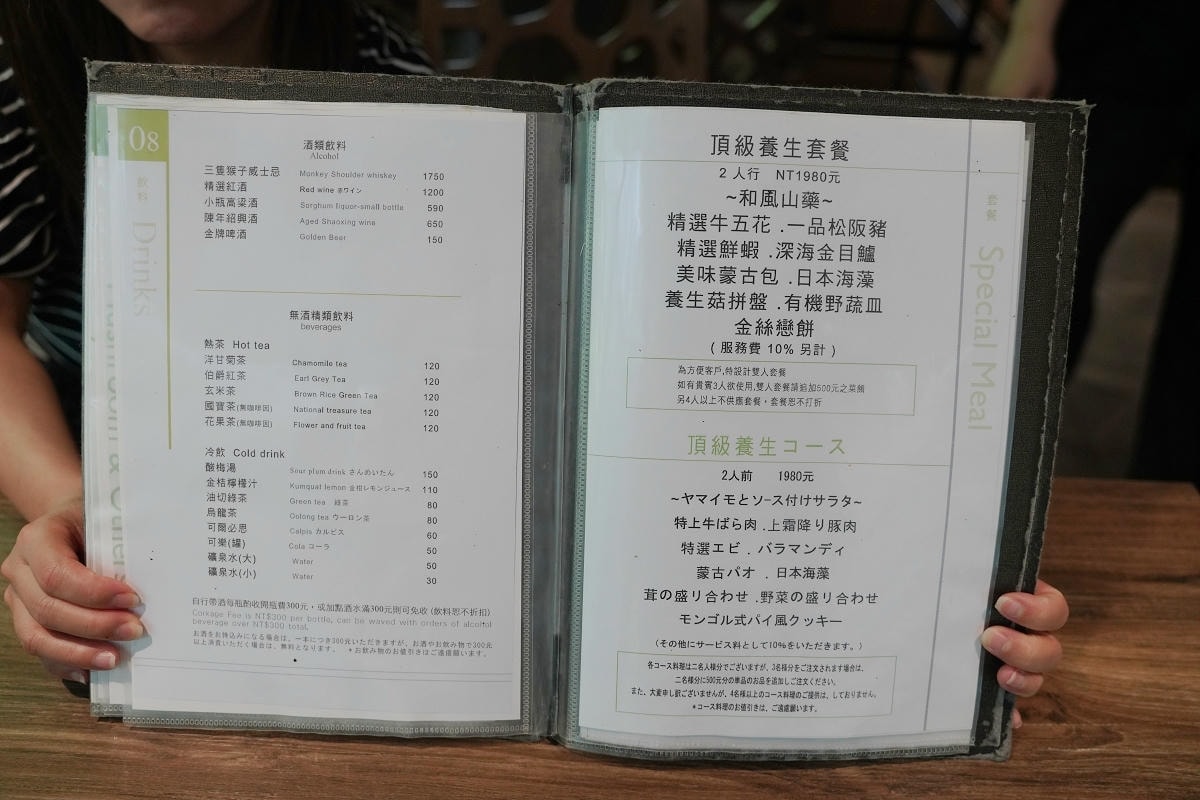 08
飲料
Drinks
酒類飲料
Alcohol
三隻猴子威士忌 Monkey Shoulder whiskey 1750
精選紅酒 Red wine 赤ワイン 1200
小瓶高粱酒 Sorghum liquor-small bottle 590
陳年紹興酒 Aged Shaoxing wine 650
金牌啤酒 Golden Beer 150
無酒精類飲料
beverages
熱茶 Hot tea
洋甘菊茶 Chamomile tea 120
伯爵紅茶 Earl Grey Tea 120
玄米茶 Brown Rice Green Tea 120
國寶茶(無咖啡因) National treasure tea 120
花果茶(無咖啡因) Flower and fruit tea 120
冷飲 Cold drink
酸梅湯 Sour plum drink さんめいたん 150
金桔檸檬汁 Kumquat lemon 金柑レモンジュース 110
油切綠茶 Green tea 綠茶 80
烏龍茶 Oolong tea ウーロン茶 80
可爾必思 Calpis カルピス 60
可樂(罐) Cola コーラ 50
礦泉水(大) Water 50
礦泉水(小) Water 30
自行帶酒每瓶酌收開瓶費300元，或加點酒水滿300元則可免收 (飲料恕不折扣)
Corkage Fee is NT$300 per bottle, can be waved with orders of alcohol
beverage over NT$300 total.
お酒をお持込みになる場合は、一本につき300元いただきますが、お酒やお飲み物で300元
以上消費いただく場合は、無料となります。 *お飲み物のお値引きはご遠慮願います。
頂級養生套餐
2 人行 NT1980元
~和風山藥~
精選牛五花 .一品松阪豬
精選鮮蝦 .深海金目鱸
美味蒙古包 .日本海藻
養生菇拼盤 .有機野蔬皿
金絲戀餅
( 服務費 10% 另計 )
為方便客戶,特設計雙人套餐
如有貴賓3人欲使用,雙人套餐請追加500元之菜餚
另4人以上不供應套餐，套餐恕不打折
頂級養生コース
2人前 1980元
~ヤマイモとソース付けサラタ~
特上牛ばら肉 .上霜降り豚肉
特選エビ . バラマンディ
蒙古パオ . 日本海藻
茸の盛り合わせ .野菜の盛り合わせ
モンゴル式パイ風クッキー
(その他にサービス料として10%をいただきます。)
各コース料理は二名人様分でございますが、3名様分をご注文されます場合は、
二名様分に500元分の単品のお品を追加しご注文ください。
また、大変申し訳ございませんが、4名様以上のコース料理のご提供は、しておりません。
*コース料理のお値引きは、ご遠慮願います。
套餐
Special Meal